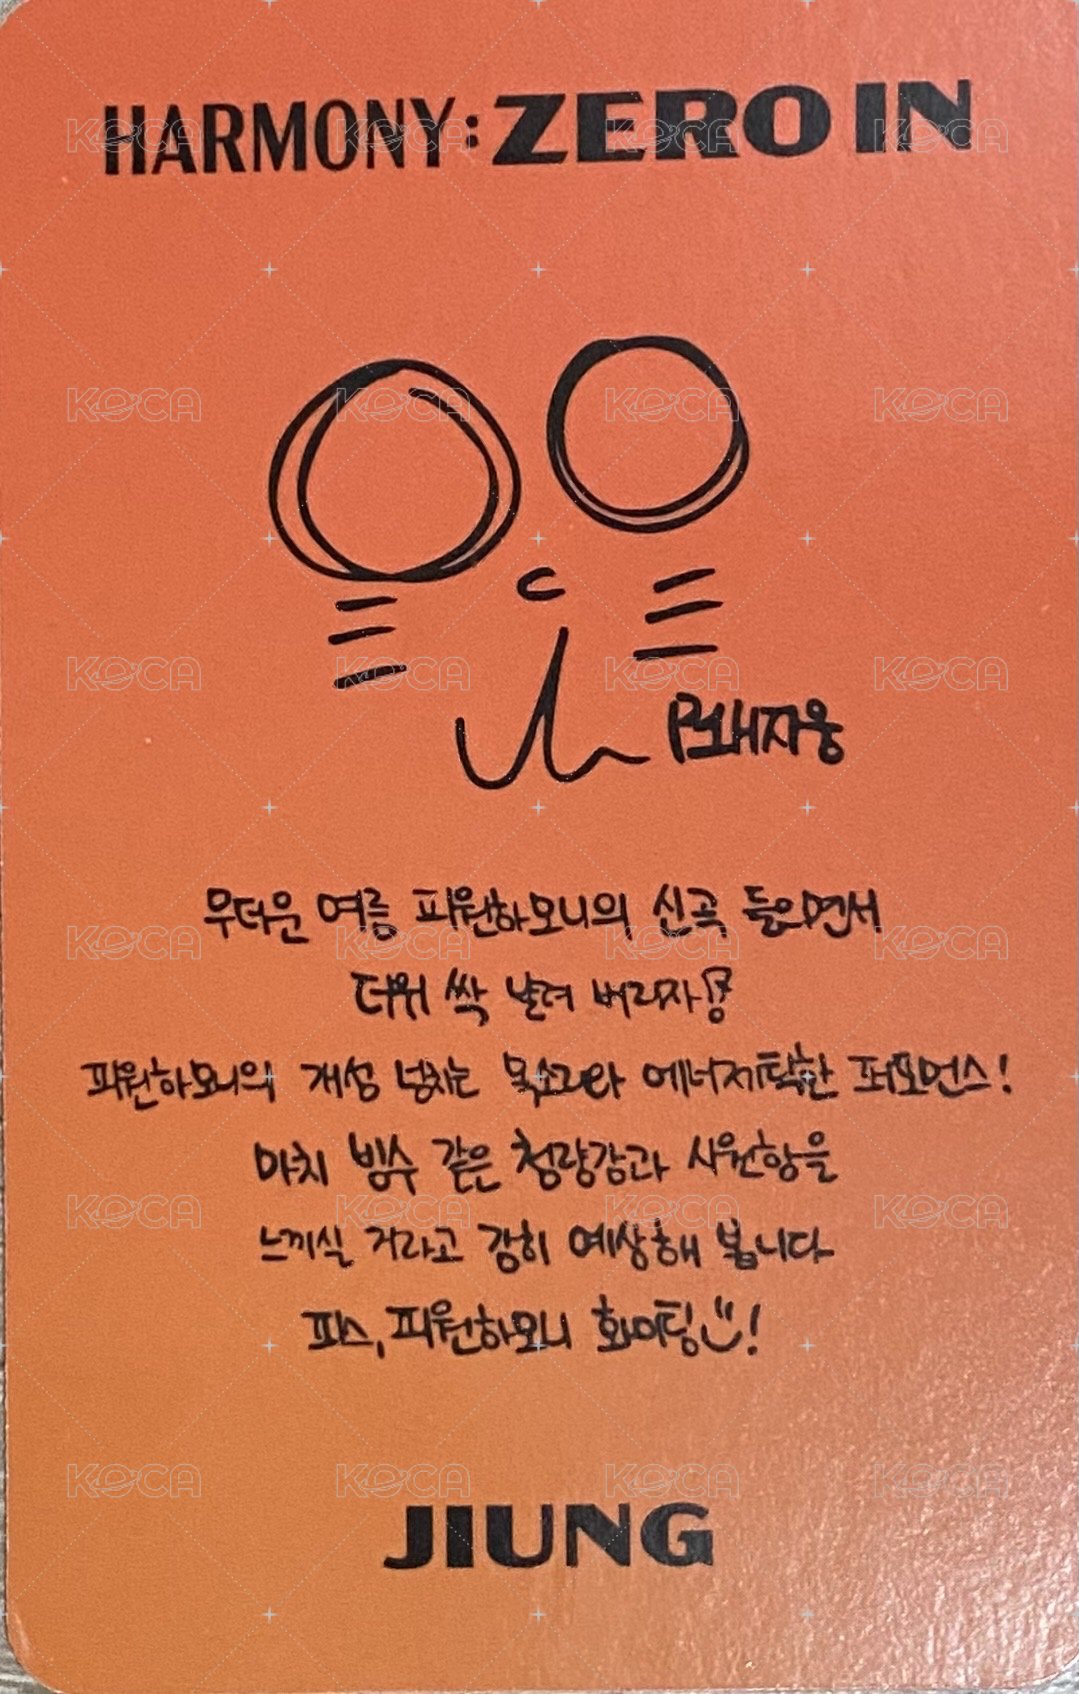 HARMONY: ZERO IN
무더운 여름 피원하모니의 신곡 들으면서
더위 싹 날려 버리자!
피원하모니의 개성 넘치는 목소리와 에너제틱한 퍼포먼스!
마치 빙수 같은 청량감과 시원함을
느끼실 거라고 감히 예상해 봅니다
피스, 피원하모니 화이팅!
JIUNG
KOCA